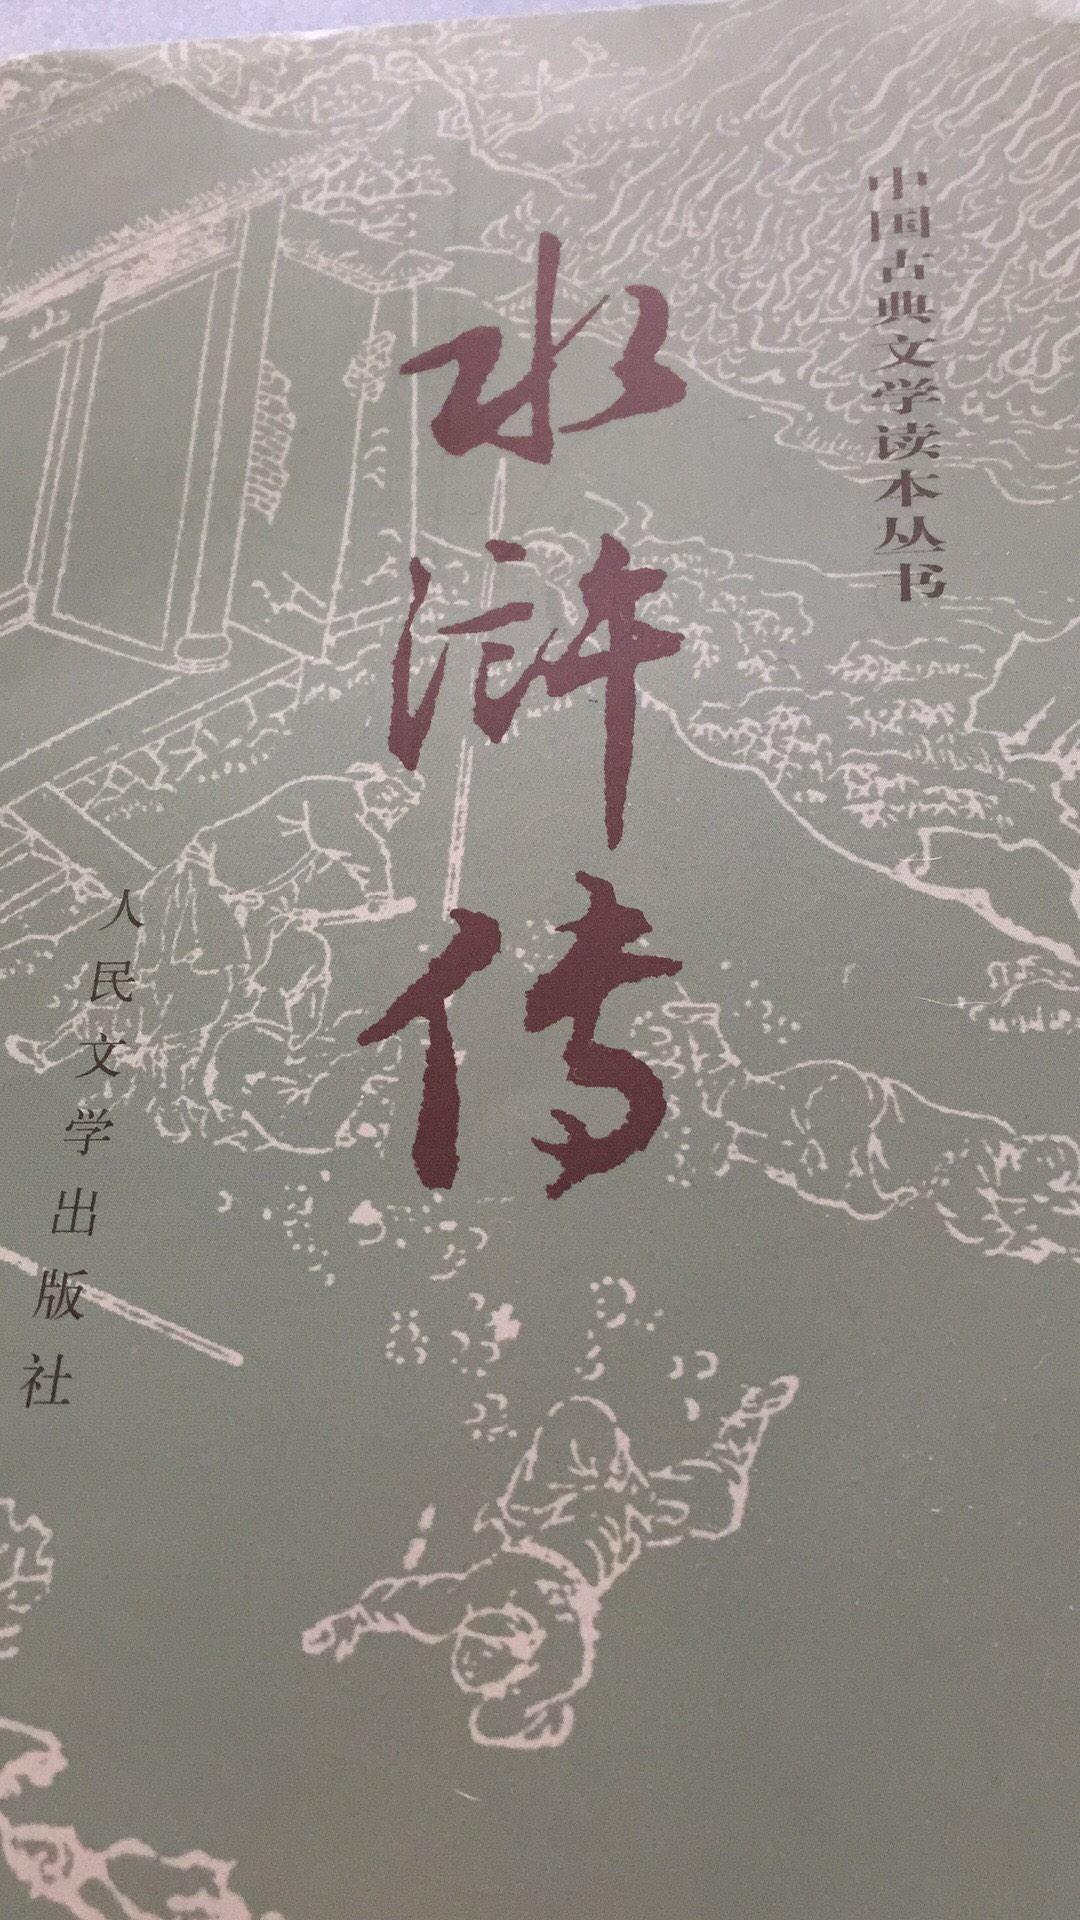 中国古典文学读本丛书
水浒传
人民文学出版社
山